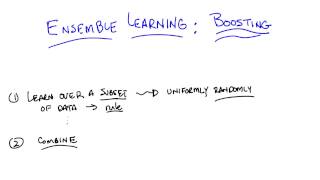 ENSEMBLE LEARNING: BOOSTING
(1) LEARN OVER A SUBSET → UNIFORMLY RANDOMLY
OF DATA → rule
(2) COMBINE